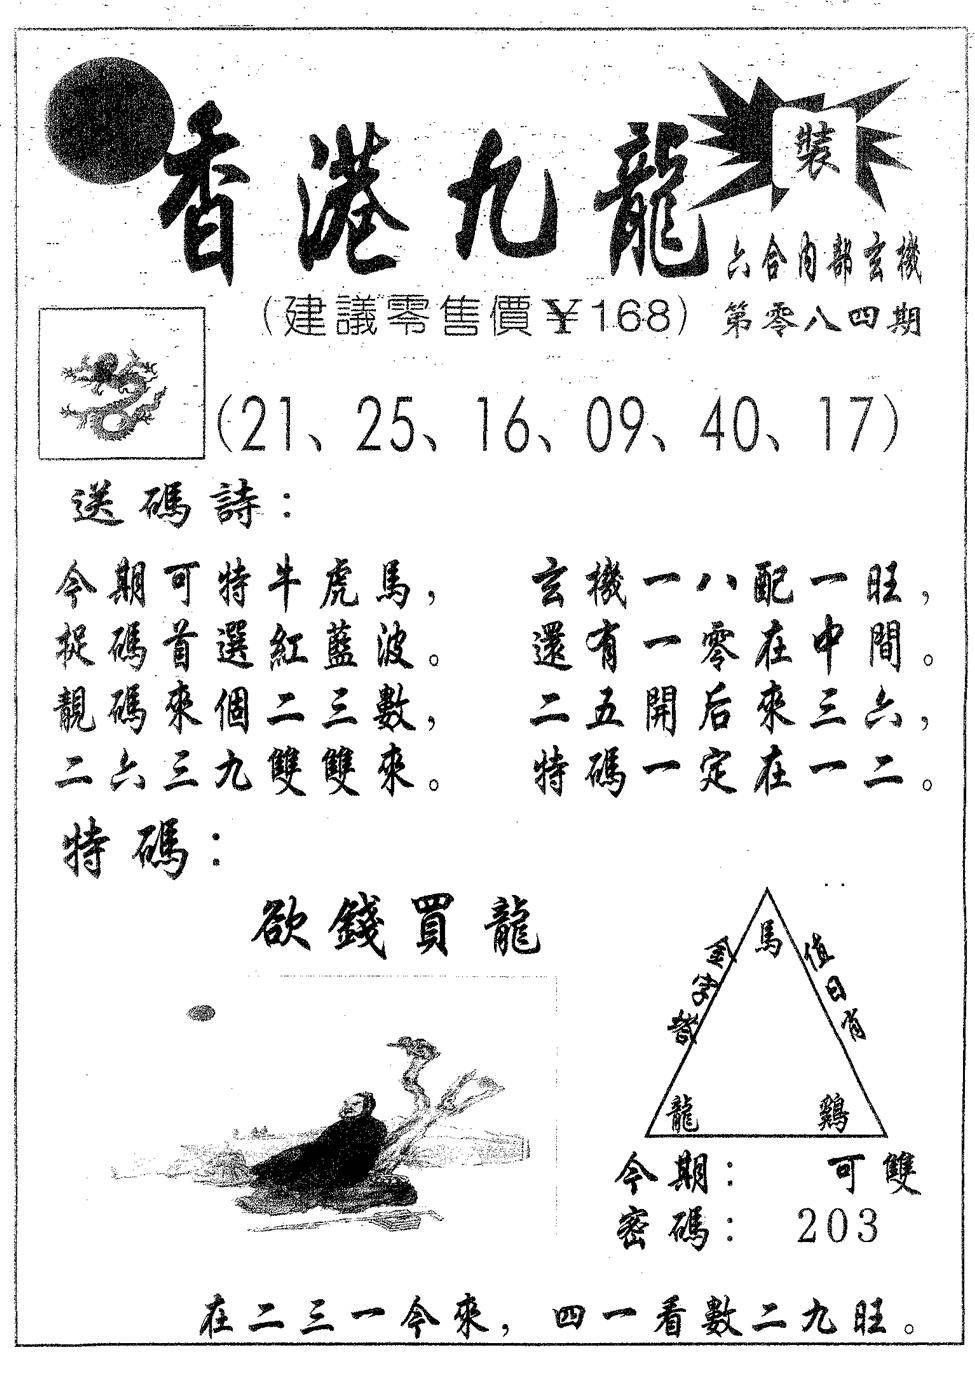 香港九龍
裝
六合内部玄機
(建議零售價¥168)
第零八四期
(21、25、16、09、40、17)
送碼詩：
今期可特牛虎馬，
捉碼首選紅藍波。
靚碼來個二三數，
二六三九雙雙來。
玄機一八配一旺，
還有一零在中間。
二五開后來三六，
特碼一定在一二。
特碼：
欲錢買龍
馬
金字塔
值日肖
龍
鷄
今期： 可雙
密碼： 203
在二三一今來，四一看數二九旺。